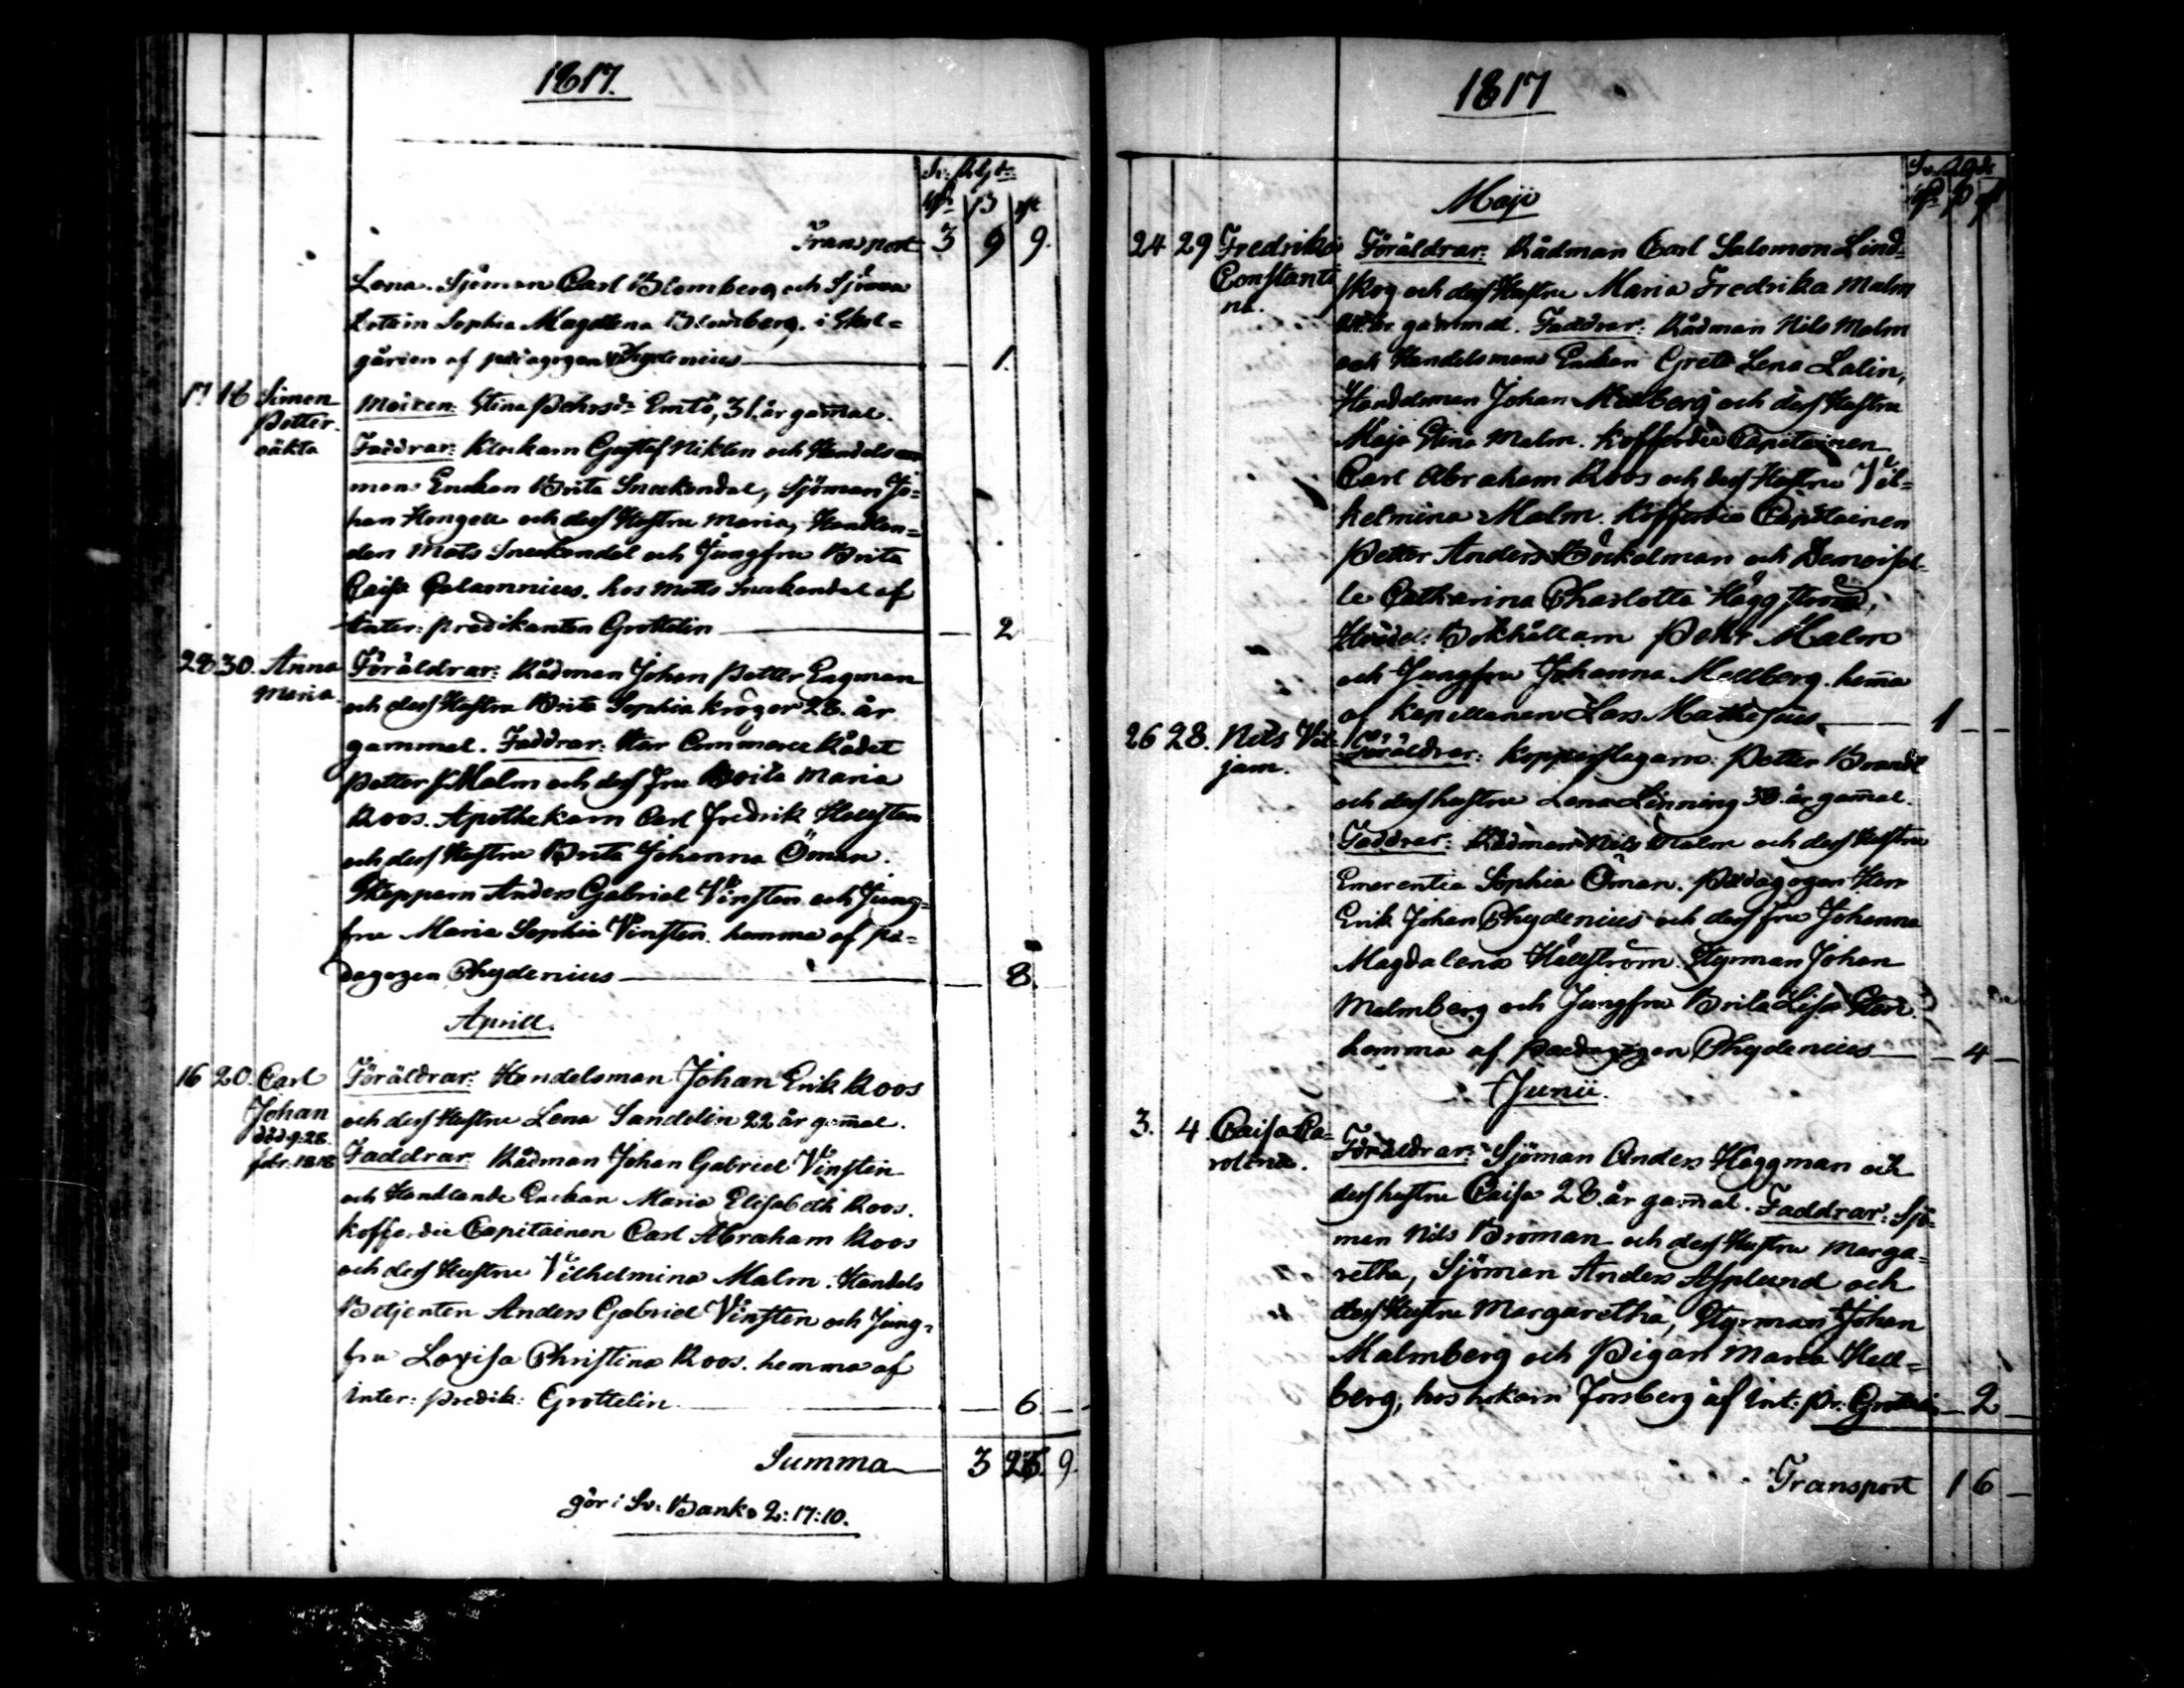 1817.
Sv: Rgds
Rd ß rst
Transport 3 9 9.
Lena. Sjöman Carl Blomberg och Sjöman
Enkan Sophia Magdlena Blomberg, i Skol=
gården af pædagogen Chydenius 1.
17 18 Simon Moiren: Stina Pehrsdr Emtö, 31. år gam̄al.
Petter.
oäkta Faddrar: Klockarn Gustaf Niklen och Handels
mans Enckan Brita Snickendal, Sjöman Jo=
han Hongell och dess Hustru Maria, Handlan=
den Mats Snickendal och Jungfru Brita
Caisa Calamnius. hos Matts Snickendal af
Inter: predikanten Grottelin 2
28 30. Anna Föräldrar: Rådman Johan Petter Engman
Maria. och dess Hustru Brita Sophia Kröger 28. år
gammal. Faddrar: Herr Commerce Rådet
Petter Malm och dess fru Brita Maria
Roos. Apothekarn Carl Fredrik Hællsten
och dess Hustru Brita Johanna Öman.
Skeppern Anders Gabriel Vinsten och Jung=
fru Maria Sophia Vinsten. hemma af pæ=
dagogen Chydenius 8.
Aprill.
16 20. Carl Föräldrar: Handelsman Johan Erik Roos
Johan och dess Hustru Lena Sandelin 22 år gam̄al.
död g: 28.
febr. 1818 Faddrar: Rådman Johan Gabriel Vinsten
och Handlande Enckan Maria Elisabeth Roos.
Kofferdie Capitainen Carl Abraham Roos
och dess Hustru Vilhelmina Malm. Handels
Betjenten Anders Gabriel Vinsten och Jung=
fru Lovisa Christina Roos. hemma af
inter: predik: Grottelin 6.
Summa 3 26. 9.
gör i Sv: Banko 2:17:10.
1817
Sv. Rgds
Maji
24 29 Fredrika Föräldrar: Rådman Carl Salomon Lind=
Constanti skog och dess Hustru Maria Fredrika Malm
na. år gammal. Faddrar: Rådman Nils Malm
och Handelsmans Enckan Greta Lena Lalin,
Handelsman Johan Mellberg och dess Hustru
Maja Stina Malm. Kofferdie Capitainen
Carl Abraham Roos och dess Hustru Vil=
helmina Malm. Kofferdie Capitainen
Petter Anders Böckelman och Demoisel=
le Catharina Charlotta Häggström,
Handel: Bokhållarn Petter Malm
och Jungfru Johanna Mellberg. hem̄a
af Kapellanen Lars Mathesius 1 – –
26 28. Nils Vil=
jam. Föräldrar: Kopparslagarn Petter Brandt
och dess hustru Lena Linning 38. år gam̄al.
Faddrar: Rådman Nils Malm och dess Hustru
Emerentia Sophia Öman. Pædagogen Herr
Erik Johan Chydenius och dess fru Johanna
Magdalena Hällström. Styrman Johan
Malmberg och Jungfru Brita Lisa
hemma af Pædagogen Chydenius – 4 –
Junii.
3. 4. Caisa Ca=
rolina. Föräldrar: Sjöman Anders Häggman och
dess hustru Caisa 28. år gam̄al. Faddrar: Sjö=
man Nils Broman och dess Hustru Marga=
retha, Sjöman Anders Asplund och
dess Hustru Margaretha, Styrman Johan
Malmberg och Pigan Maria Hell=
berg, hos hokarn Forsberg af Int: Pr: Grottelin – 2 –
Transport 1 6 –